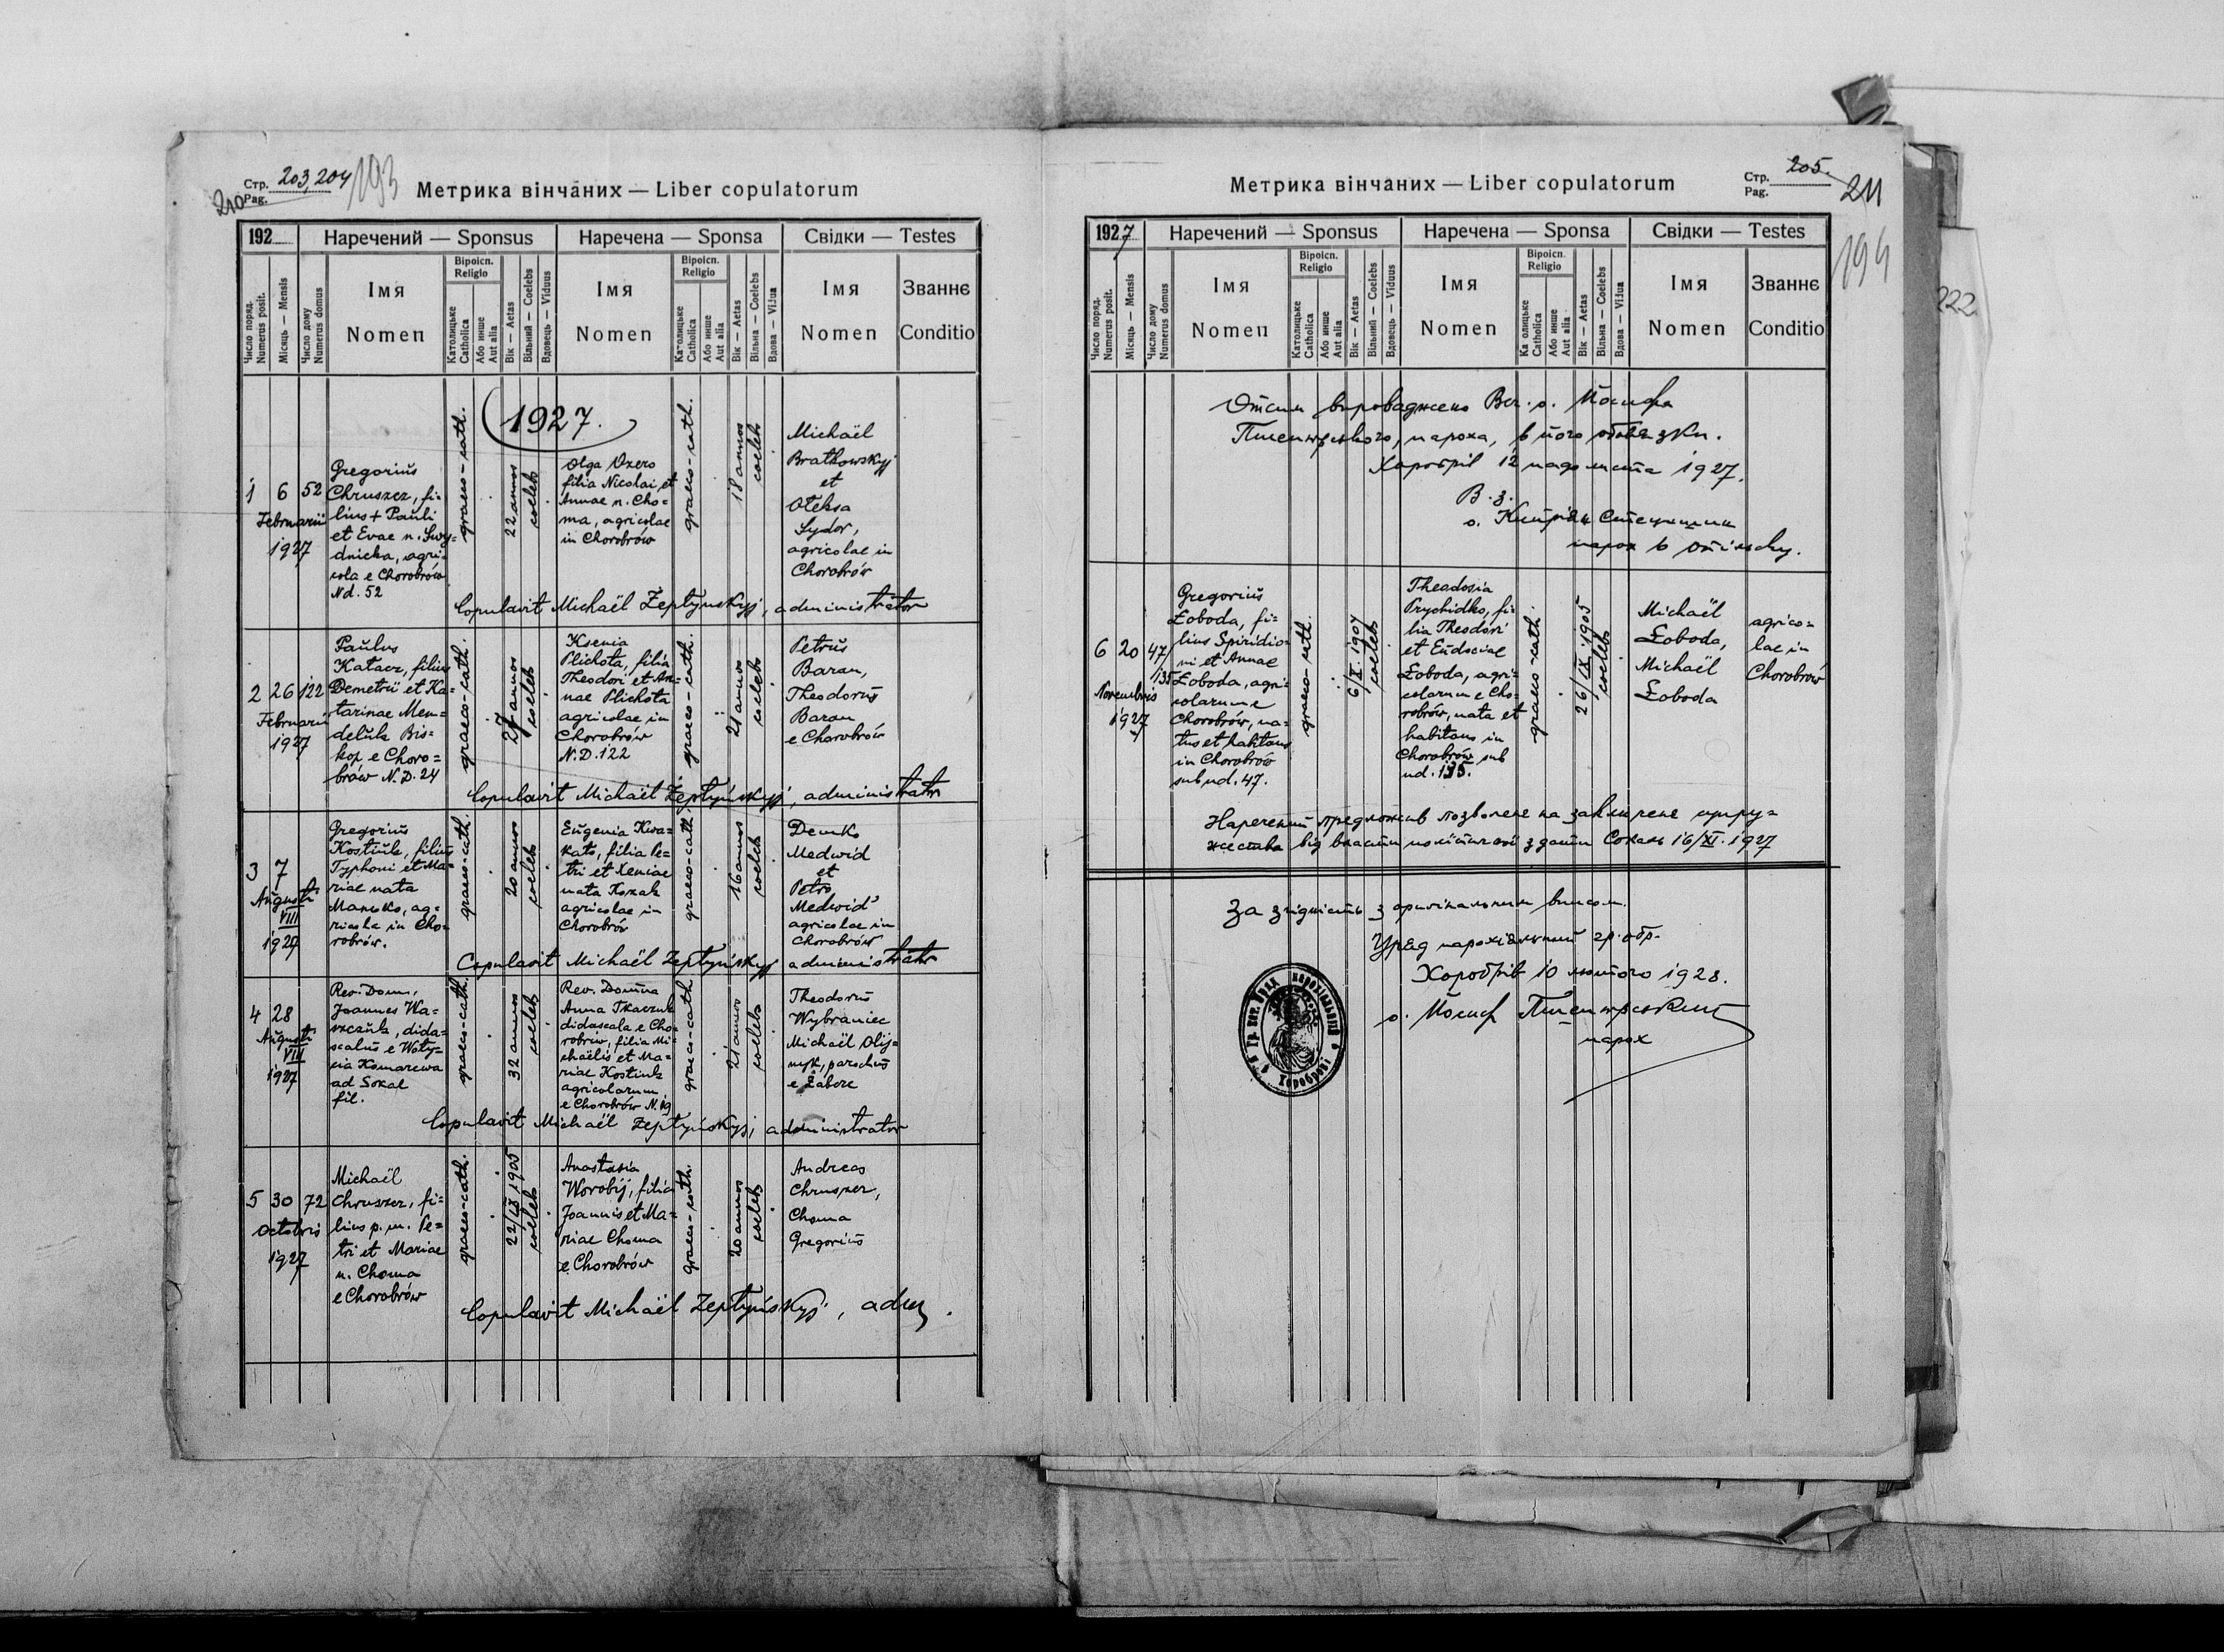 Стр. 203, 204
Pag.
210
193
Метрика вінчаних — Liber copulatorum
192
Наречений — Sponsus
Наречена — Sponsa
Свідки — Testes
Число поряд.
Numerus posit.
Місяць — Mensis
Число дому
Numerus domus
Імя
Nomen
Віроісп.
Religio
Католицьке
Catholica
Або инше
Aut alia
Вік — Aetas
Вільний — Coelebs
Вдовець — Viduus
Імя
Nomen
Віроісп.
Religio
Католицьке
Catholica
Або инше
Aut alia
Вік — Aetas
Вільна — Coelebs
Вдова — Vidua
Імя
Nomen
Званнє
Conditio
1927.
1
6
52
Februarii
1927
Gregoriŭs
Chruszcz, fi-
lius + Paŭli
et Evae n. Swy-
dnicka, agri-
cola e Chorobrów
Nd. 52
graeco-cath.
22 annos
coelebs
Olga Oxero
filia Nicolai et
Annae n. Cho-
ma, agricolae
in Chorobrów
graeco-cath.
18 annos
coelebs
Michaël
Bratkowskyj
et
Oleksa
Sydor,
agricolae in
Chorobrów
Copulavit Michaël Żeptynskyj, administrator
2
26
122
Februarii
1927
Paŭlus
Katacz, filius
Demetrii et Ka-
tarinae Men-
deluk Bis-
kop e Choro-
brów N.D. 24
graeco-cath.
27 annos
coelebs
Ksenia
Plichota, filia
Theodori et An-
nae Plichota
agricolae in
Chorobrów
N.D. 122
graeco-cath.
21 annos
coelebs
Petrŭs
Baran,
Theodorŭs
Baran
e Chorobrów
Copulavit Michaël Żeptyńskyj, administrator
3
7
Aŭgusti
VIII
1927
Gregoriŭs
Kostiŭk, filius
Typhoni et Ma-
riae nata
Манько, ag-
ricola in Cho-
robrów.
graeco-cath.
20 annos
coelebs
Eŭgenia Kwa-
kato, filia Pe-
tri et Xeniae
nata Kozak
agricolae in
Chorobrów
graeco-cath.
16 annos
coelebs
Demko
Medwid
et
Petro
Medwid'
agricolae in
Chorobrów
Copulavit Michaël Żeptyńskyj administrator
4
28
Aŭgusti
VIII
1927
Rev. Dom.
Joannes Wa-
szczŭk, dida-
scalus e Woty-
cia Komarewa
ad Sokal
fil.
graeco-cath.
32 annos
coelebs
Rev. Domina
Anna Tkaczuk
didascala e Cho-
robrów, filia Mi-
chaëlis et Ma-
riae Kostiuk
agricolarum
e Chorobrów N. 19
graeco-cath.
21 annos
coelebs
Theodorŭs
Wybraniec
Michaël Olij-
nyk, parochŭs
e Zaborze
Copulavit Michaël Żeptyńskyj, administrator
5
30
72
Octobris
1927
Michaël
Chruszcz, fi-
lius p. m. Pe-
tri et Mariae
n. Choma
e Chorobrów
graeco-cath.
22/IX 1905
coelebs
Anastasia
Worobij, filia
Joannis et Ma-
riae Choma
e Chorobrów
graeco-cath.
20 annos
coelebs
Andreas
Chruszcz,
Choma
Gregoriŭs
Copulavit Michaël Żeptyńskyj, adm.
Метрика вінчаних — Liber copulatorum
Стр. 205.
Pag.
211
194
222
1927
Наречений — Sponsus
Наречена — Sponsa
Свідки — Testes
Число поряд.
Numerus posit.
Місяць — Mensis
Число дому
Numerus domus
Імя
Nomen
Віроісп.
Religio
Католицьке
Catholica
Або инше
Aut alia
Вік — Aetas
Вільний — Coelebs
Вдовець — Viduus
Імя
Nomen
Віроісп.
Religio
Ка олицьке
Catholica
Або инше
Aut alia
Вік — Aetas
Вільна — Coelebs
Вдова — Vidua
Імя
Nomen
Званнє
Conditio
Отсим впроваджено Всч. о. Йосифа
пароха, в його обовязки.
Хоробрів 12 падолиста 1927.
В. з.
о. Кипріян Стецишин
парох в
6
20
47/135
Novembris
1927
Gregoriŭs
Łoboda, fi-
lius Spiridio-
ni et Annae
Łoboda, agri-
colarum e
Chorobrów, na-
tus et habitans
in Chorobrów
sub nd. 47.
graeco-cath.
6/X. 1904
coelebs
Theodosia
Prychidko, fi-
lia Theodori
et Eŭdociae
Łoboda, agri-
colarum e Cho-
robrów, nata et
habitans in
Chorobrów sub
nd. 135.
graeco-cath.
26/IX. 1905
coelebs
Michaël
Łoboda,
Michaël
Łoboda
agrico-
lae in
Chorobrów
Наречений предложив позволенє на заключенє супру-
жества від власти політичної з дати Сокаль 16/XI. 1927
За згідність з оригінальним вписом.
Уряд парохіяльний гр. обр.
Хоробрів 10 лютого 1928.
о. Йосиф
парох